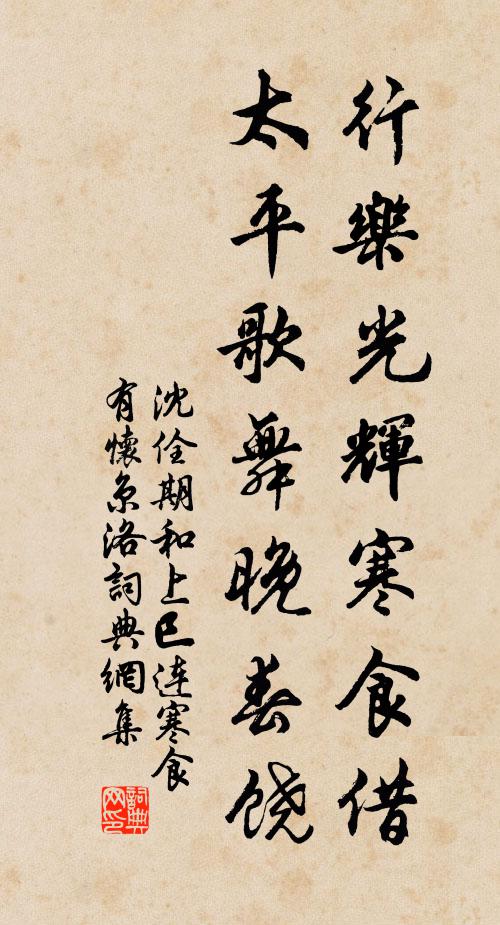 行樂光輝寒食借
太平歌舞晚春饒
沈佺期和上巳連寒食
有懷京洛詞典網集
詞典
网印